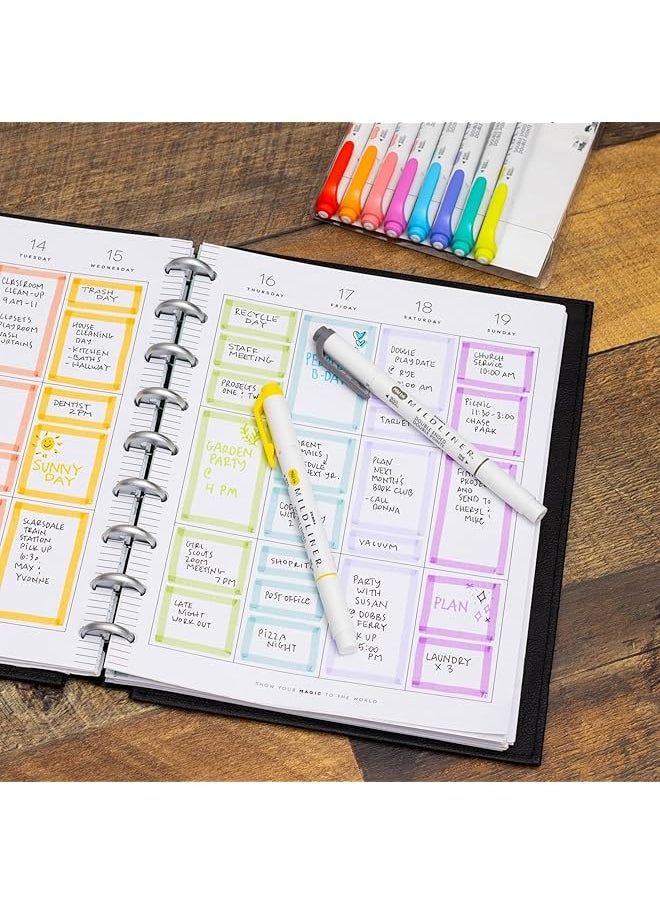 14
TUESDAY
CLASSROOM
CLEAN-UP
9AM-11
CLOSETS
PLAYROOM
WASH
CURTAINS
15
WEDNESDAY
TRASH
DAY
HOUSE
CLEANING
DAY
-KITCHEN
-BATHS
-HALLWAY
DENTIST
2PM
SUNNY
DAY
SCARSDALE
TRAIN
STATION
PICK UP
6:30
MAX &
YVONNE
16
THURSDAY
RECYCLE
DAY
STAFF
MEETING
PROJECTS
ONE & TWO
GARDEN
PARTY
@
4 PM
GIRL
SCOUTS
ZOOM
MEETING
7 PM
LATE
NIGHT
WORK OUT
17
FRIDAY
B-DAY
NEXT YR.
SHOPRITE
POST OFFICE
PIZZA
NIGHT
18
SATURDAY
DOUGIE
PLAYDATE
@ RYE
AM
TARGET
PLAN
NEXT
MONTH'S
BOOK CLUB
-CALL
DONNA
VACUUM
PARTY
WITH
SUSAN
@ DOBBS
FERRY
5:00
PM
19
SUNDAY
CHURCH
SERVICE
10:00 AM
PICNIC
11:30-3:00
CHASE
PARK
PROJECT
AND
SEND TO
CHERYL &
MIKE
PLAN
LAUNDRY
X 3
MILDLINER
DOUBLE ENDED
MILDLINER
ZEBRA
SHOW YOUR MAGIC TO THE WORLD